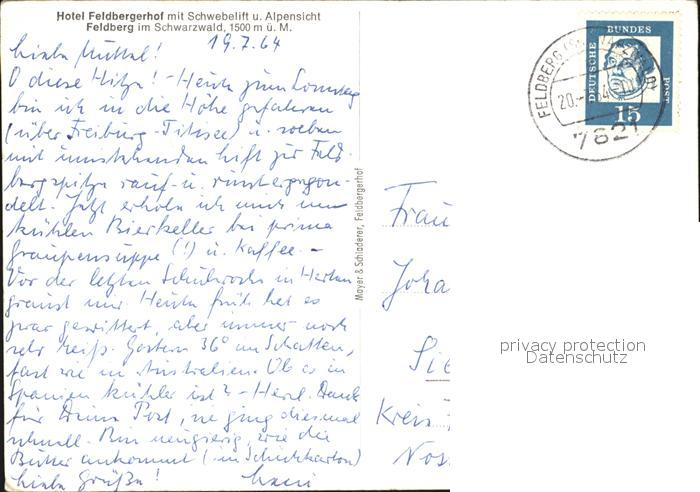 Hotel Feldbergerhof mit Schwebelift u. Alpensicht
Feldberg im Schwarzwald, 1500 m ü. M.
19.7.64
Liebe Muttel!
O diese Hitze! - Heute zum Sonntag
bin ich in die Höhe gefahren
(über Freiburg-Titisee) u. soeben
mit umstehendem Lift zur Feld-
bergspitze rauf- u. runtergegon-
delt. Jetzt erhole ich mich im
kühlen Bierkeller bei prima
Graupensuppe (!) u. Kaffee. -
Vor der letzten Schulwoche in
graust mir. Heute früh hat es
zwar gewittert, aber immer noch
sehr heiß. Gestern 36° im Schatten,
fast wie in Australien. Ob es in
Spanien kühler ist? - Herzl. Dank
für Deine Post, sie ging diesmal
schnell. Bin neugierig, wie die
Butter ankommt (im Schuhkarton)
Liebe Grüße!
Mayer & Schladerer, Feldbergerhof
DEUTSCHE
BUNDES
POST
15
FELDBERG (SCHWARZWALD)
20.-7.64
7821
Frau
Joha
Sie
Kreis
Nos
privacy protection
Datenschutz